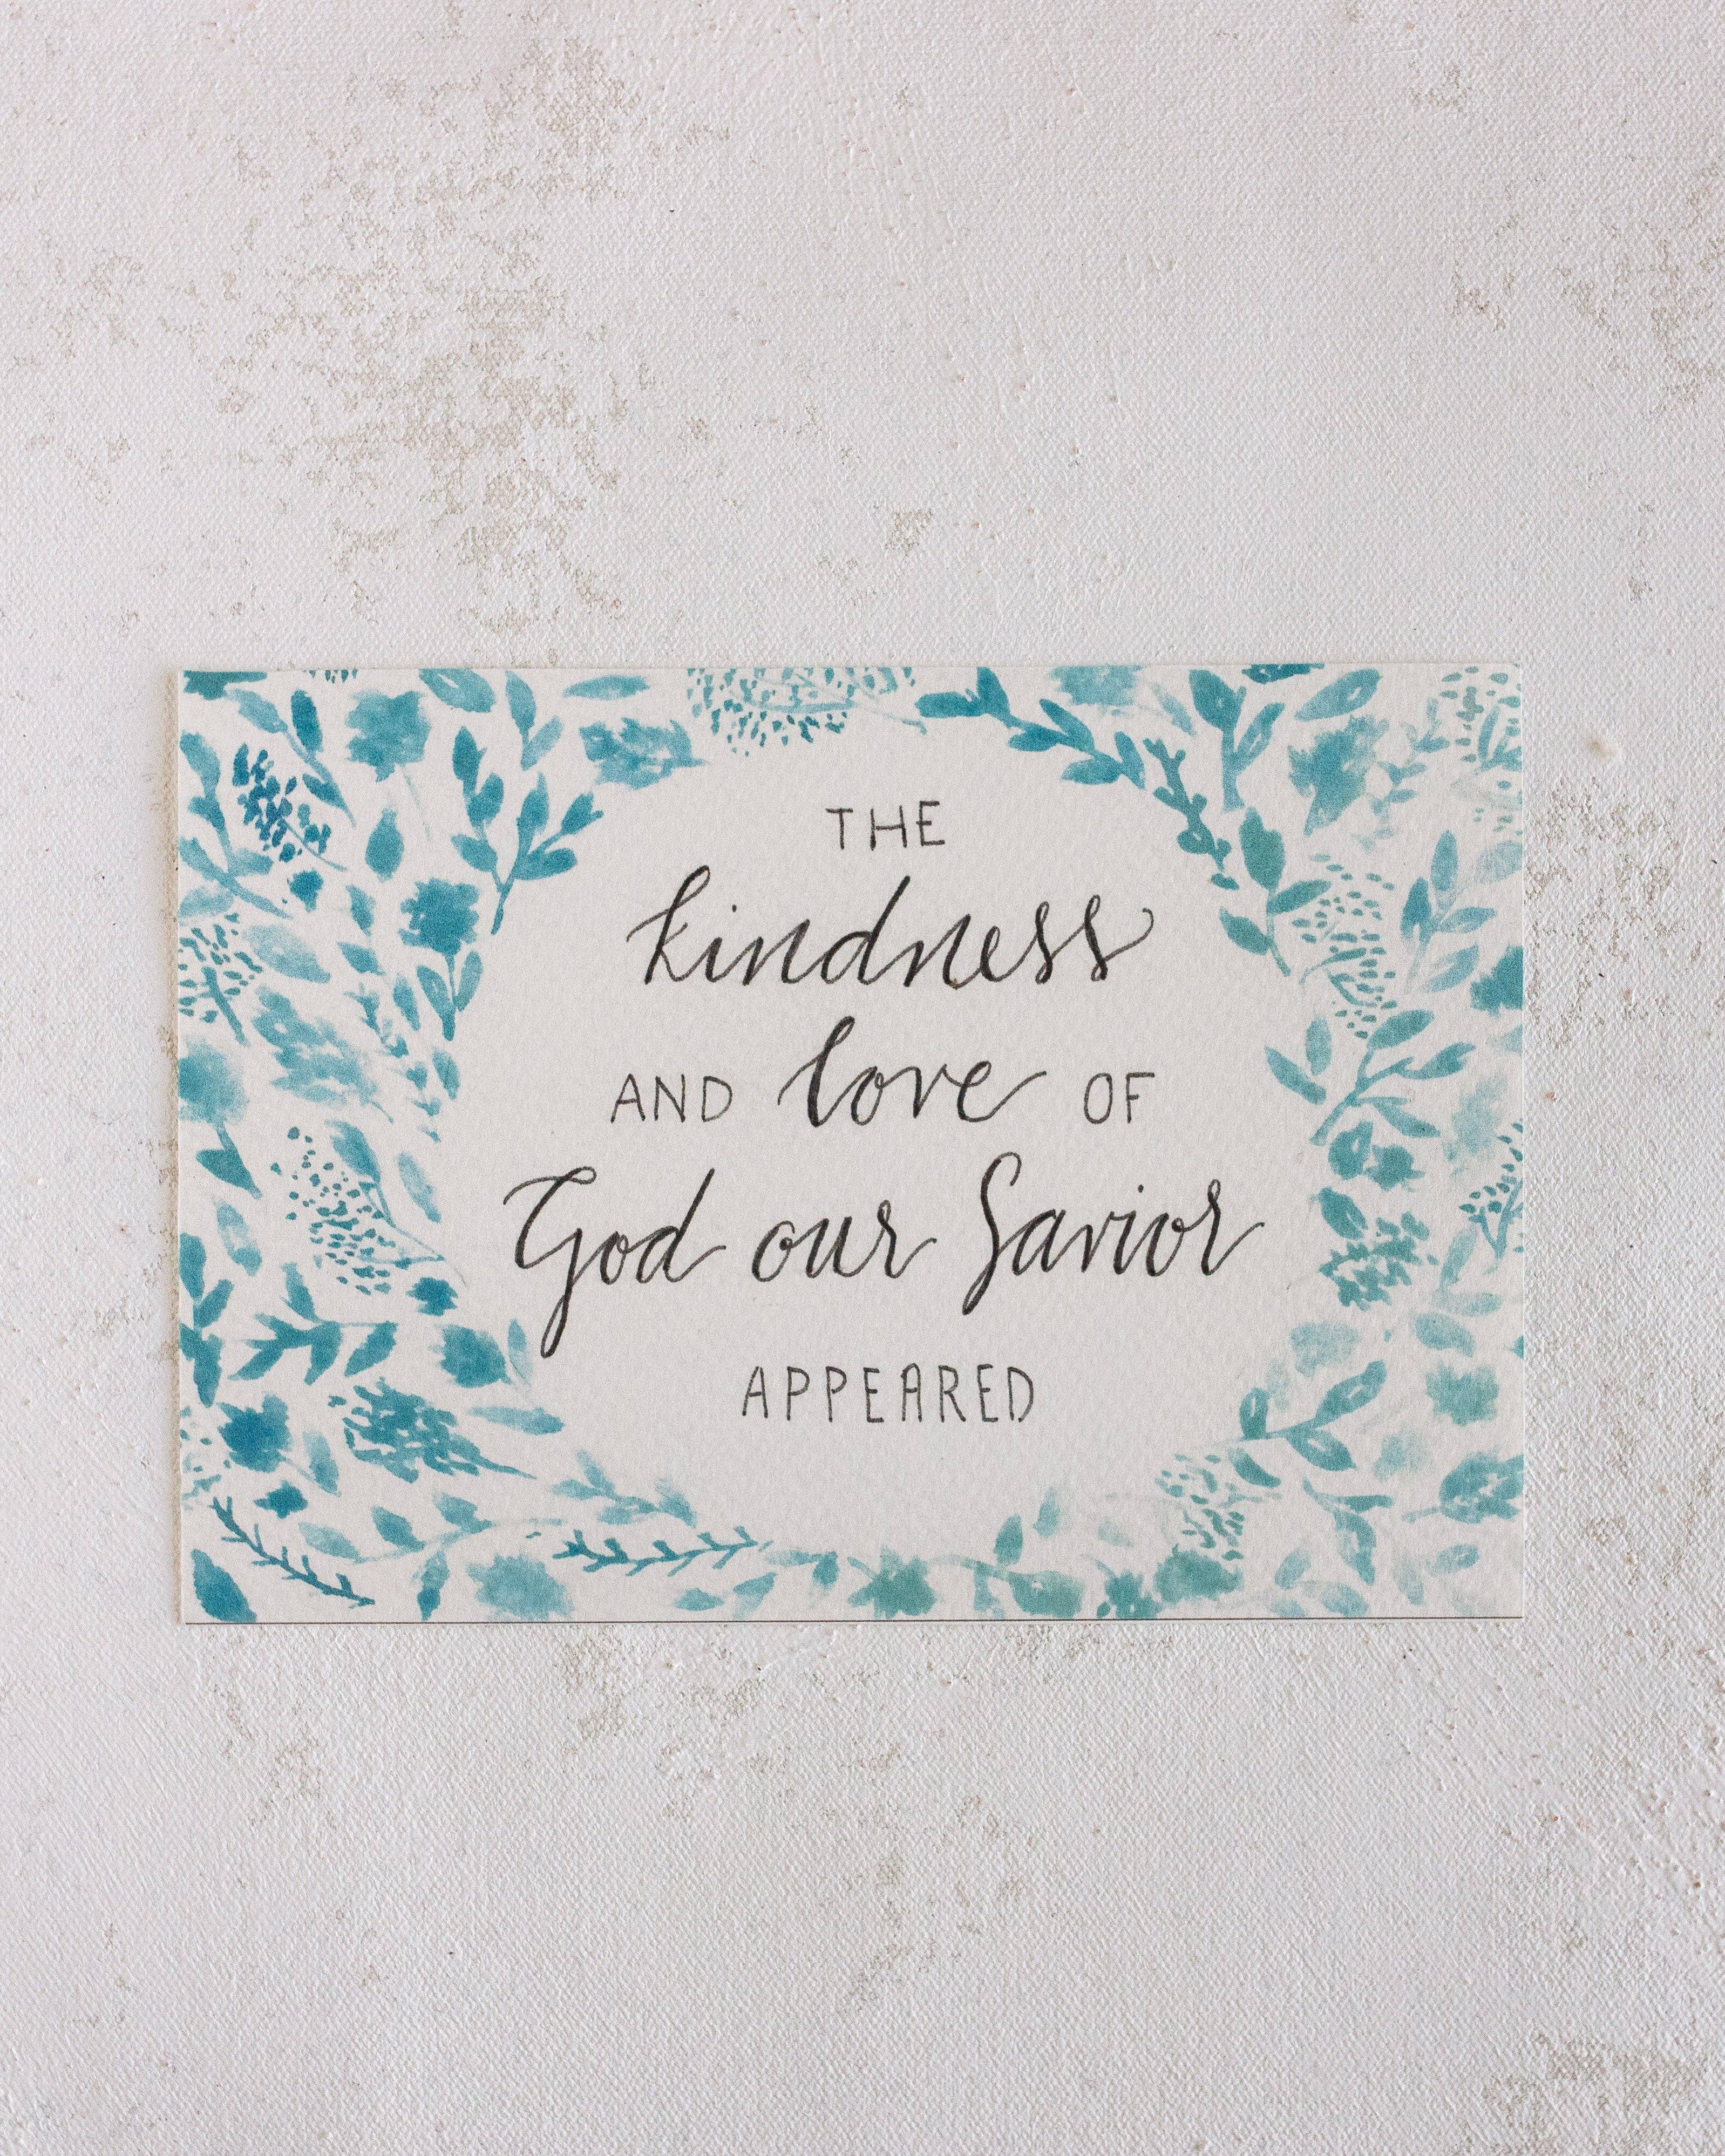 THE
kindness
AND love OF
God our Savior
APPEARED